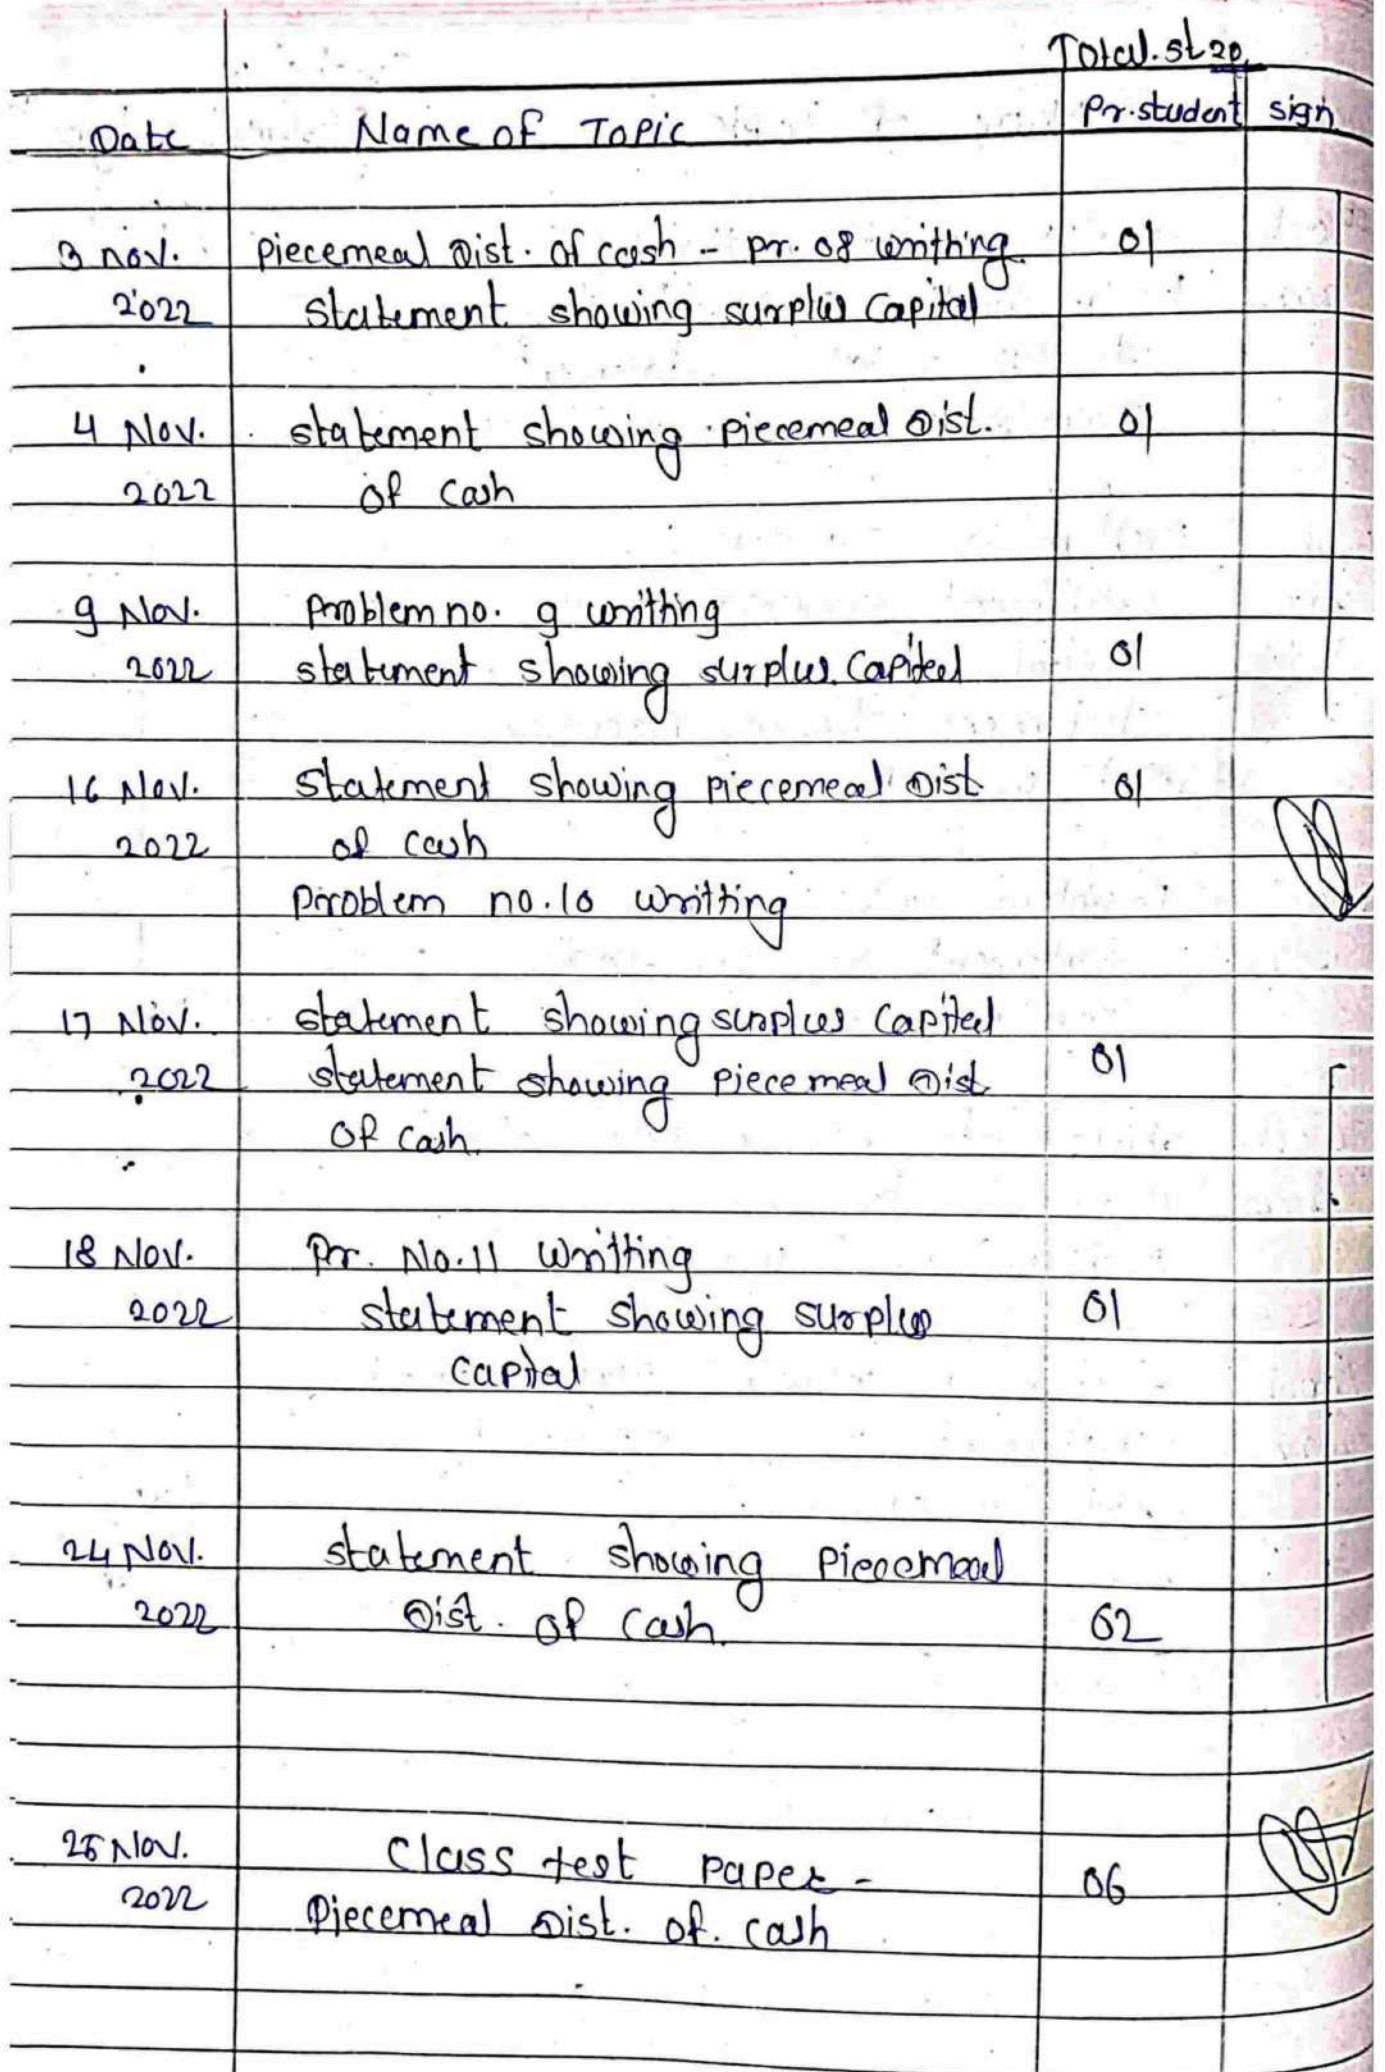 Total. st 20
Date Name of Topic Pr. student sign
3 nov. piecemeal Dist. of cash - pr. 08 writhing 01
2022 statement showing surplus capital
4 Nov. statement showing piecemeal Dist. 01
2022 of cash
9 Nov. Problem no. 9 writhing
2022 statement showing surplus capital 01
16 Nov. statement showing piecemeal Dist 01
2022 of cash
Problem no. 10 writting
17 Nov. statement showing surplus capital
2022 statement showing piecemeal Dist 01
of cash.
18 Nov. Pr. No. 11 writting
2022 statement showing surplus 01
capital
24 Nov. statement showing piecemeal
2022 Dist. of cash. 02
25 Nov. Class test paper - 06
2022 Piecemeal Dist. of. cash